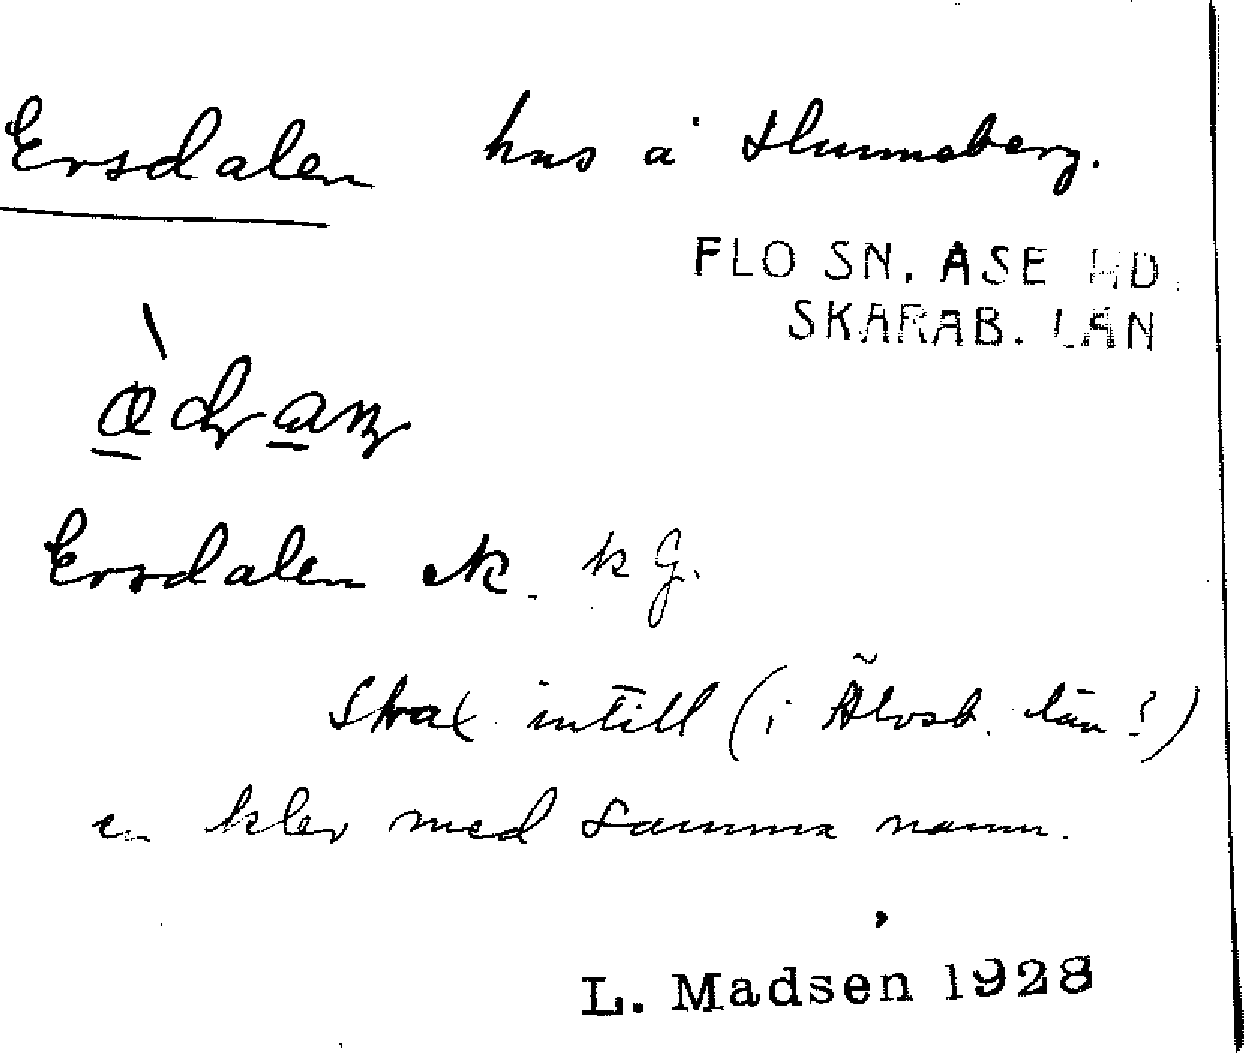 Ersdalen hus å Hunneberg.
FLO SN. ÅSE HD.
SKARAB. LÄN
Ersdalen ek. kg.
Strax intill (i Älvsb. län?)
en klev med samma namn.
L. Madsen 1928